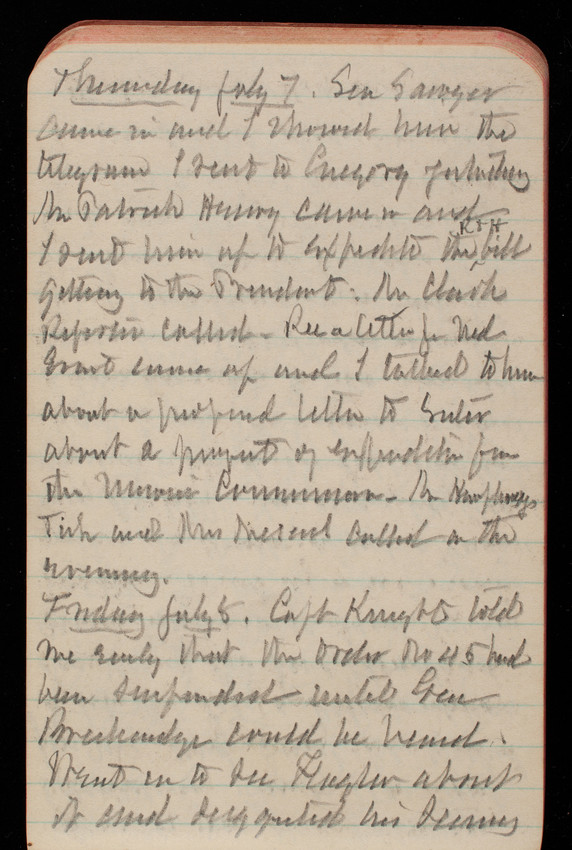 Thursday July 7. Sen Sawyer
came in and I showed him the
telegram I sent to Gregory
Mr Patrick Henry came in and
I sent him up to expedite the R & H bill
getting to the President. Mr Clark
Reporter called - Rec a letter fr Ned
Grant came up and I talked to him
about a proposed letter to Suter
about a project of expenditure from
the Commission - Mr Humphreys
Tish and Mrs called in the
evening.
Friday July 8. Capt Knight told
me early that the order No 45 had
been suspended until Gen
Breckinridge could be heard.
Went in to see Flagler about
it and suggested his seeing